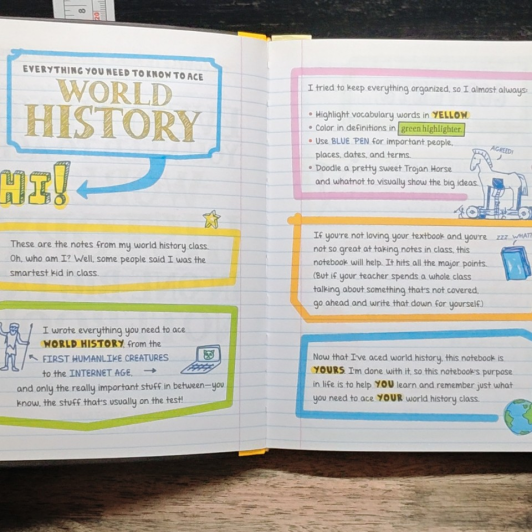 8
EVERYTHING YOU NEED TO KNOW TO ACE
WORLD
HISTORY
HI!
These are the notes from my world history class.
Oh, who am I? Well, some people said I was the
smartest kid in class.
I wrote everything you need to ace
WORLD HISTORY from the
FIRST HUMANLIKE CREATURES
to the INTERNET AGE.
and only the really important stuff in between—you
know, the stuff that's usually on the test!
I tried to keep everything organized, so I almost always:
• Highlight vocabulary words in YELLOW.
• Color in definitions in green highlighter.
• Use BLUE PEN for important people,
places, dates, and terms.
• Doodle a pretty sweet Trojan Horse
and whatnot to visually show the big ideas.
If you're not loving your textbook and you're
not so great at taking notes in class, this
notebook will help. It hits all the major points.
(But if your teacher spends a whole class
talking about something that's not covered,
go ahead and write that down for yourself.)
ZZZ
Now that I've aced world history, this notebook is
YOURS. I'm done with it, so this notebook's purpose
in life is to help YOU learn and remember just what
you need to ace YOUR world history class.